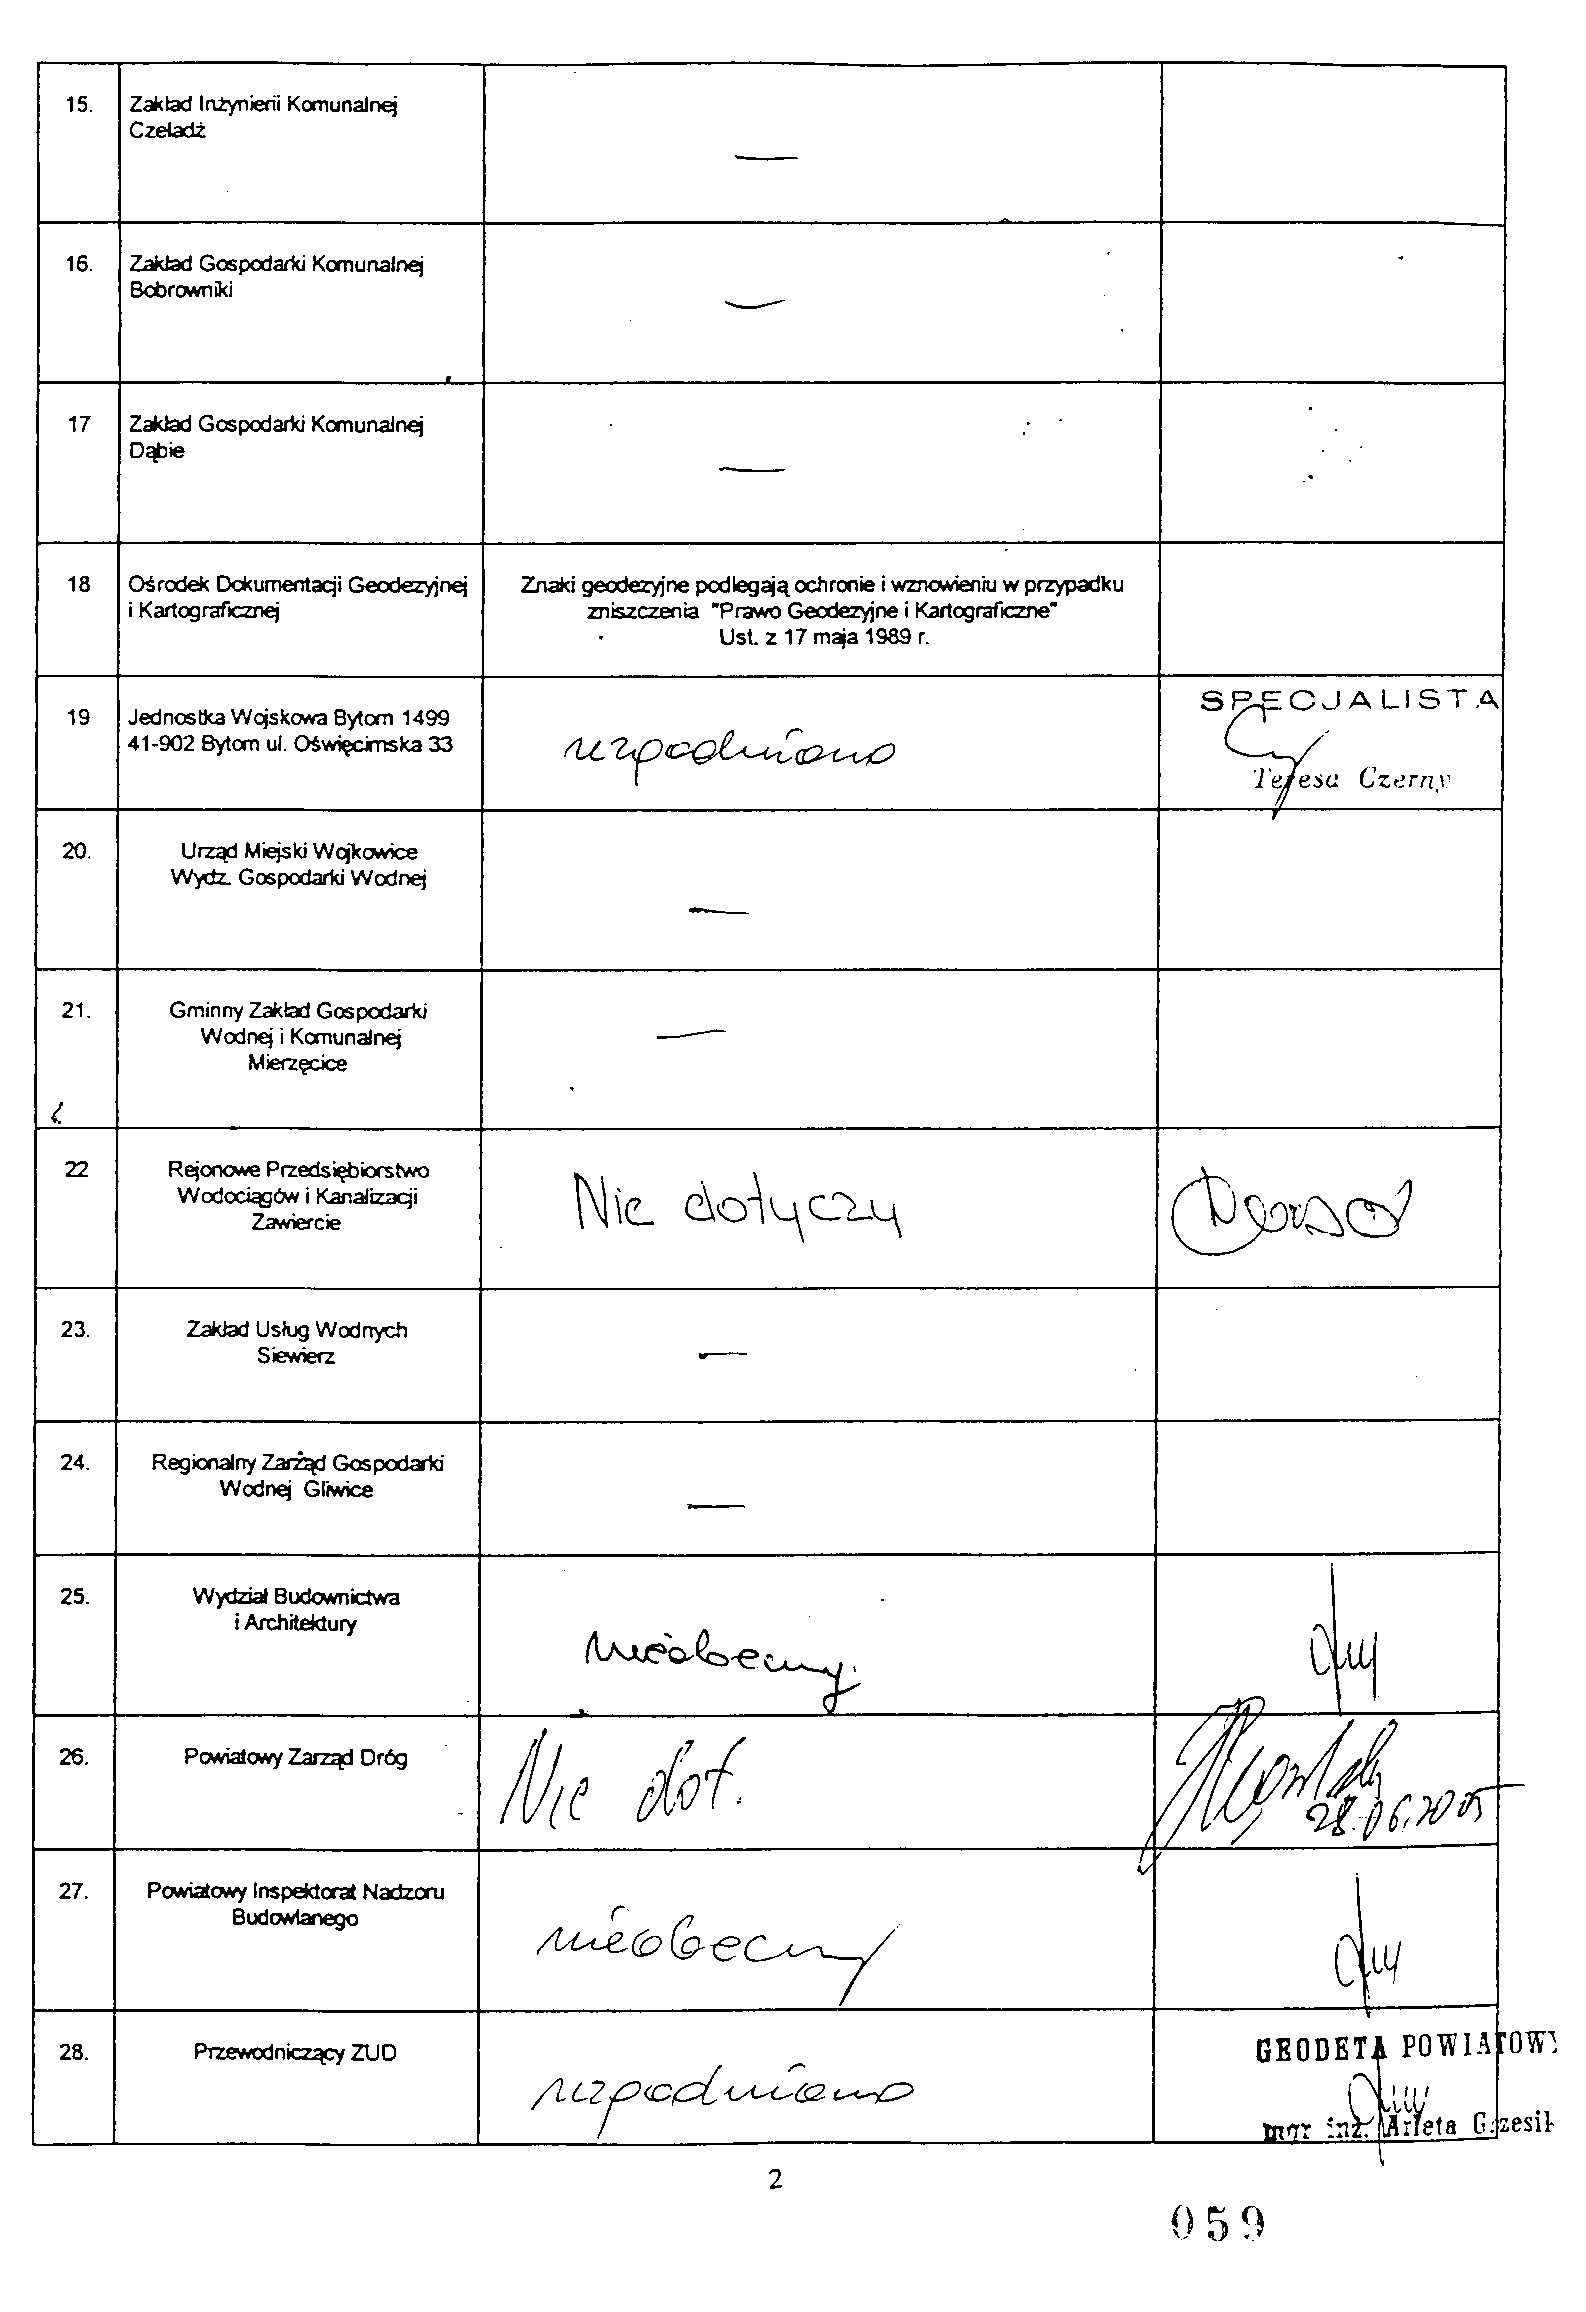 15. Zakład Inżynierii Komunalnej
Czeladź
—
16. Zakład Gospodarki Komunalnej
Bobrowniki
—
17 Zakład Gospodarki Komunalnej
Dąbie
—
18 Ośrodek Dokumentacji Geodezyjnej
i Kartograficznej
Znaki geodezyjne podlegają ochronie i wznowieniu w przypadku
zniszczenia "Prawo Geodezyjne i Kartograficzne"
Ust. z 17 maja 1989 r.
19 Jednostka Wojskowa Bytom 1499
41-902 Bytom ul. Oświęcimska 33
uzgodniono
SPECJALISTA
Teresa Czerny
20. Urząd Miejski Wojkowice
Wydz. Gospodarki Wodnej
—
21. Gminny Zakład Gospodarki
Wodnej i Komunalnej
Mierzęcice
—
22 Rejonowe Przedsiębiorstwo
Wodociągów i Kanalizacji
Zawiercie
Nie dotyczy
23. Zakład Usług Wodnych
Siewierz
—
24. Regionalny Zarząd Gospodarki
Wodnej Gliwice
—
25. Wydział Budownictwa
i Architektury
nieobecny.
26. Powiatowy Zarząd Dróg
Nie dot.
28.06.2005
27. Powiatowy Inspektorat Nadzoru
Budowlanego
nieobecny
28. Przewodniczący ZUD
uzgodniono
GEODETA POWIATOWY
mgr inż. Arleta Grzesik
2
059